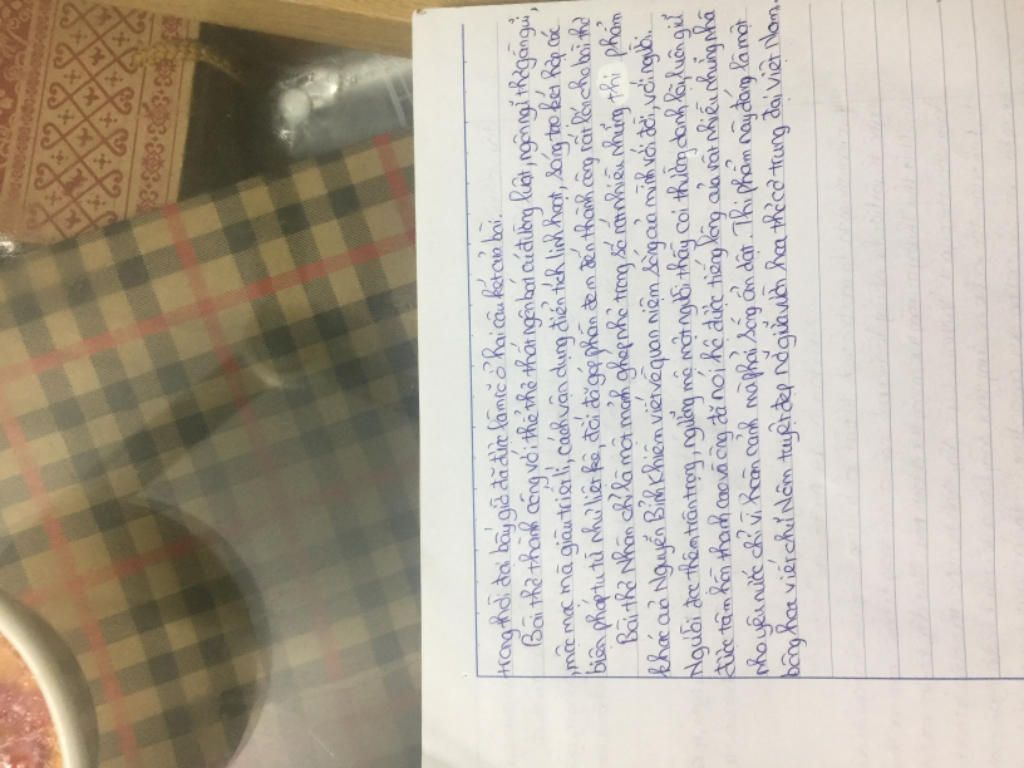 trong thời đại bây giờ đã được làm rõ ở hai câu kết của bài.
Bài thơ thành công với thể thơ thất ngôn bát cú đường luật, ngôn ngữ thơ gần gũi,
mộc mạc mà giàu triết lí, cách vận dụng điển tích linh hoạt, sáng tạo kết hợp các
biện pháp tu từ như liệt kê, đối, đã góp phần đem đến thành công rất lớn cho bài thơ
Bài thơ Nhàn chỉ là một mảnh ghép nhỏ trong số rất nhiều những thi phẩm
khác của Nguyễn Bỉnh Khiêm viết về quan niệm sống của mình với đời, với người.
Người đọc thêm trân trọng, ngưỡng mộ một người thầy coi thường danh lợi, luôn giữ
được tâm hồn thanh cao và ông đã nói hộ được tiếng lòng của rất nhiều những nhà
nho yêu nước chỉ vì hoàn cảnh mà phải sống ẩn dật. Thi phẩm này đáng là một
bông hoa viết chữ Nôm tuyệt đẹp nở giữa vườn hoa thơ cơ trung đại Việt Nam.